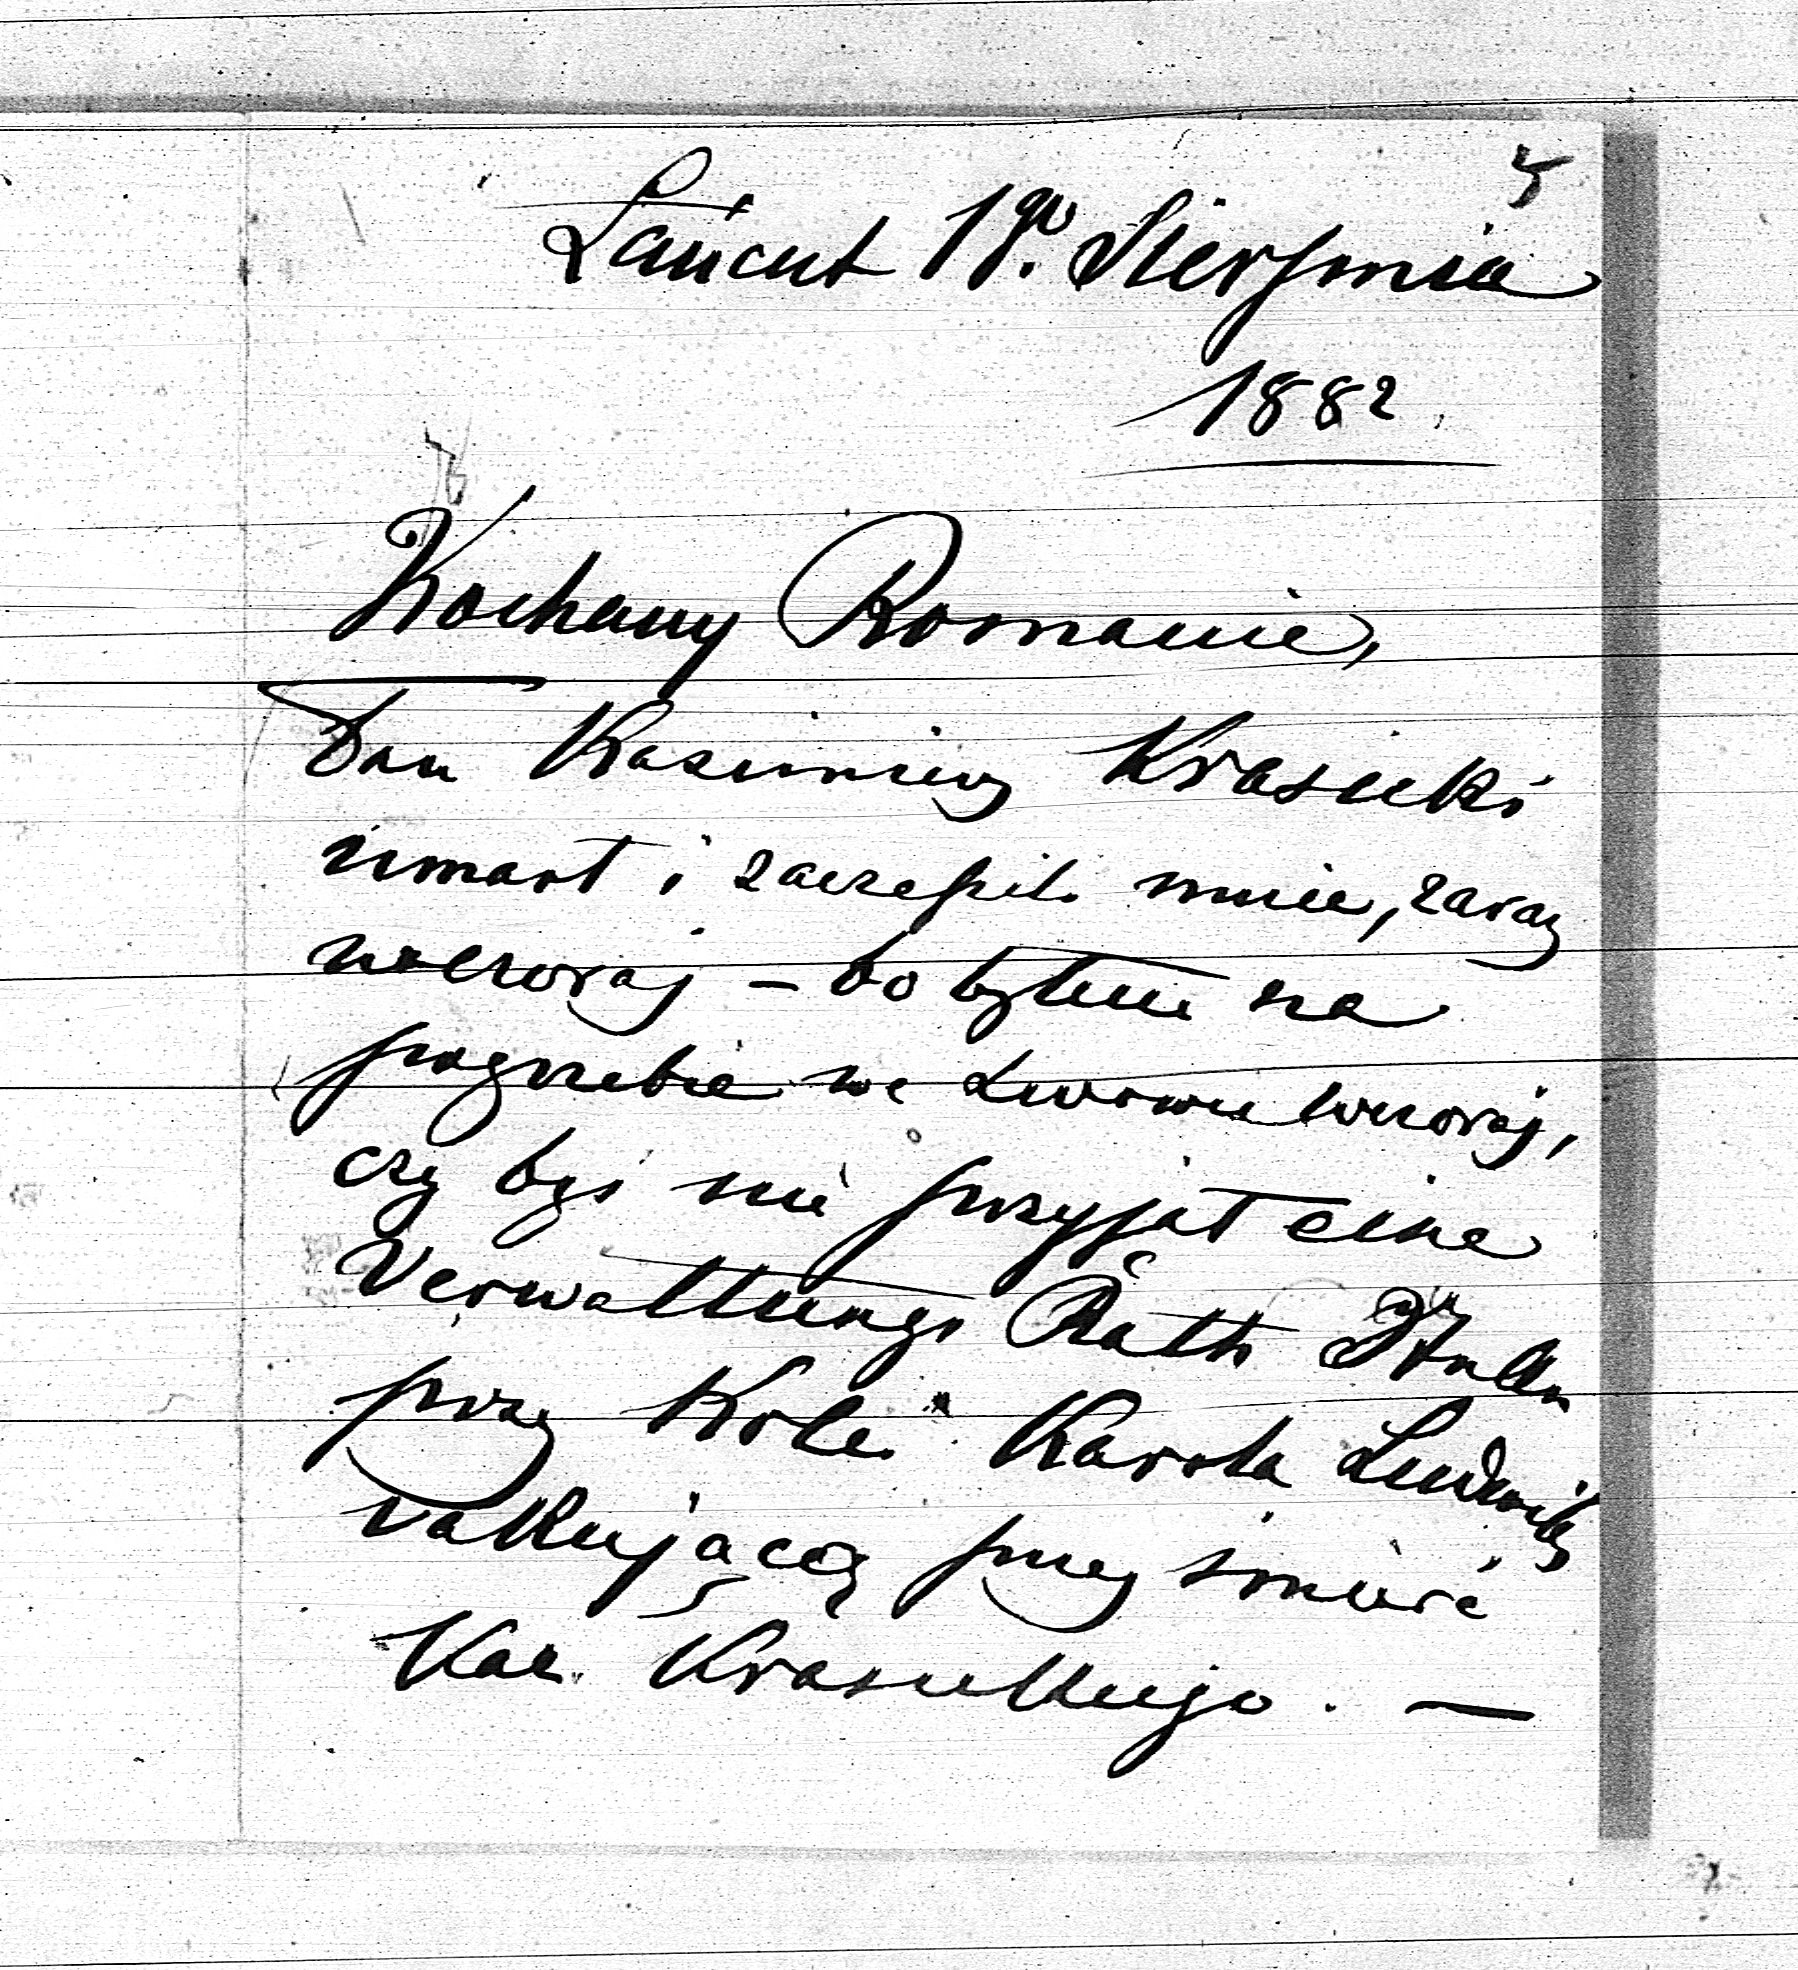 5
Łańcut 1go. Sierpnia
1882.
Kochany Romanie,
Pan Kazimierz Krasicki
umarł i zaczepili mnie, zaraz
wczoraj – bo byłem na
pogrzebie we Lwowie wczoraj,
czy byś nie przyjął eine
Verwaltungs Rath Stelle
przy Kolei Karola Ludwika
vakującą przez śmierć
Kaz. Krasickiego. —